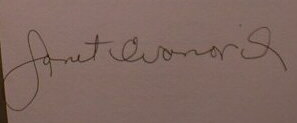 Janet Evanovich